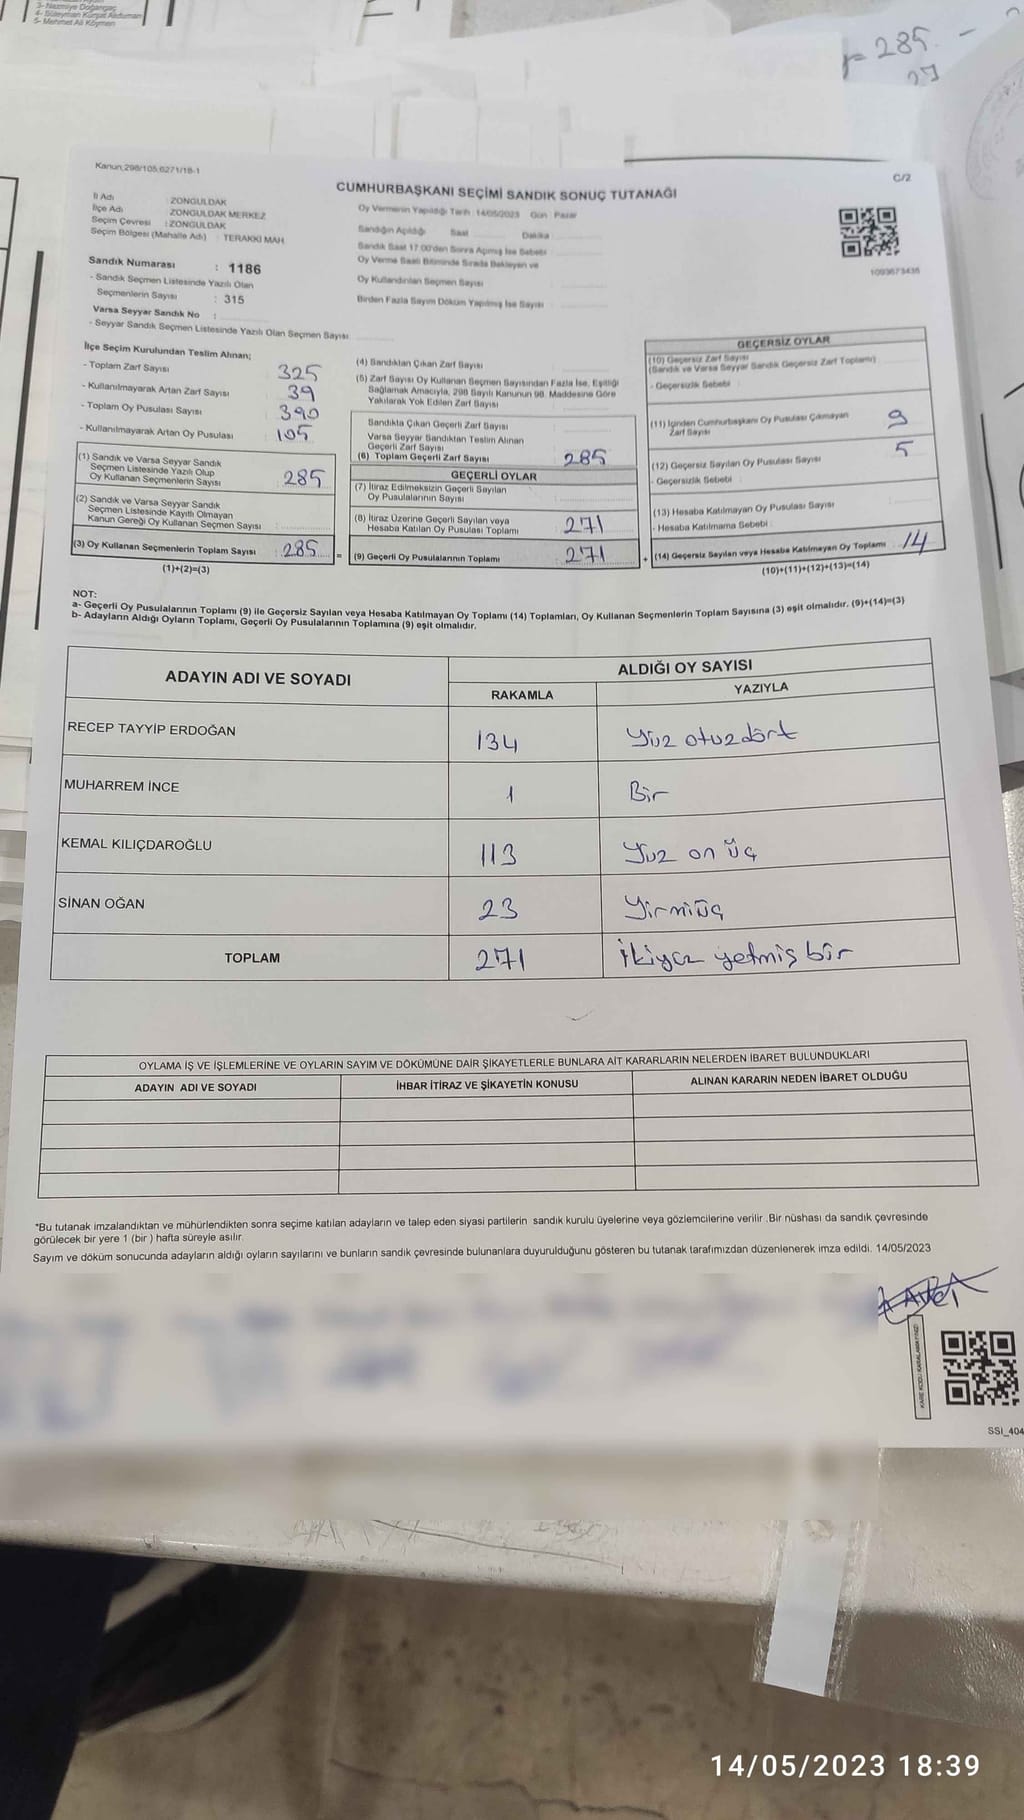 3- Nazmiye Doğangaç
4- Süleyman Kürşat Akduman
5- Mehmet Ali Köymen
= 285 -
27
Kanun,298/105,6271/18-1
C/2
CUMHURBAŞKANI SEÇİMİ SANDIK SONUÇ TUTANAĞI
İl Adı : ZONGULDAK
İlçe Adı : ZONGULDAK MERKEZ
Seçim Çevresi : ZONGULDAK
Seçim Bölgesi (Mahalle Adı) : TERAKKİ MAH.
Sandık Numarası : 1186
- Sandık Seçmen Listesinde Yazılı Olan
Seçmenlerin Sayısı : 315
Varsa Seyyar Sandık No :
- Seyyar Sandık Seçmen Listesinde Yazılı Olan Seçmen Sayısı
Oy Vermenin Yapıldığı Tarih : 14/05/2023 Gün : Pazar
Sandığın Açıldığı Saat Dakika
Sandık Saat 17:00'den Sonra Açılmış İse Sebebi
Oy Verme Saati Bitiminde Sırada Bekleyen ve
Oy Kullandırılan Seçmen Sayısı
Birden Fazla Sayım Döküm Yapılmış İse Sayısı
1093673435
İlçe Seçim Kurulundan Teslim Alınan;
- Toplam Zarf Sayısı 325
- Kullanılmayarak Artan Zarf Sayısı 39
- Toplam Oy Pusulası Sayısı 390
- Kullanılmayarak Artan Oy Pusulası 105
(1) Sandık ve Varsa Seyyar Sandık
Seçmen Listesinde Yazılı Olup
Oy Kullanan Seçmenlerin Sayısı 285
(2) Sandık ve Varsa Seyyar Sandık
Seçmen Listesinde Kayıtlı Olmayan
Kanun Gereği Oy Kullanan Seçmen Sayısı
(3) Oy Kullanan Seçmenlerin Toplam Sayısı 285 =
(1)+(2)=(3)
(4) Sandıktan Çıkan Zarf Sayısı
(5) Zarf Sayısı Oy Kullanan Seçmen Sayısından Fazla İse, Eşitliği
Sağlamak Amacıyla, 298 Sayılı Kanunun 98. Maddesine Göre
Yakılarak Yok Edilen Zarf Sayısı
Sandıkta Çıkan Geçerli Zarf Sayısı
Varsa Seyyar Sandıktan Teslim Alınan
Geçerli Zarf Sayısı
(6) Toplam Geçerli Zarf Sayısı 285
GEÇERLİ OYLAR
(7) İtiraz Edilmeksizin Geçerli Sayılan
Oy Pusulalarının Sayısı
(8) İtiraz Üzerine Geçerli Sayılan veya
Hesaba Katılan Oy Pusulası Toplamı 271
(9) Geçerli Oy Pusulalarının Toplamı 271 +
GEÇERSİZ OYLAR
(10) Geçersiz Zarf Sayısı
(Sandık ve Varsa Seyyar Sandık Geçersiz Zarf Toplamı)
- Geçersizlik Sebebi
(11) İçinden Cumhurbaşkanı Oy Pusulası Çıkmayan
Zarf Sayısı 9
(12) Geçersiz Sayılan Oy Pusulası Sayısı 5
- Geçersizlik Sebebi
(13) Hesaba Katılmayan Oy Pusulası Sayısı
- Hesaba Katılmama Sebebi
(14) Geçersiz Sayılan veya Hesaba Katılmayan Oy Toplamı 14
(10)+(11)+(12)+(13)=(14)
NOT:
a- Geçerli Oy Pusulalarının Toplamı (9) ile Geçersiz Sayılan veya Hesaba Katılmayan Oy Toplamı (14) Toplamları, Oy Kullanan Seçmenlerin Toplam Sayısına (3) eşit olmalıdır. (9)+(14)=(3)
b- Adayların Aldığı Oyların Toplamı, Geçerli Oy Pusulalarının Toplamına (9) eşit olmalıdır.
ADAYIN ADI VE SOYADI ALDIĞI OY SAYISI
RAKAMLA YAZIYLA
RECEP TAYYİP ERDOĞAN 134 Yüz otuzdört
MUHARREM İNCE 1 Bir
KEMAL KILIÇDAROĞLU 113 Yuz on üç
SİNAN OĞAN 23 Yirmiüç
TOPLAM 271 İkiyüz yetmiş bir
OYLAMA İŞ VE İŞLEMLERİNE VE OYLARIN SAYIM VE DÖKÜMÜNE DAİR ŞİKAYETLERLE BUNLARA AİT KARARLARIN NELERDEN İBARET BULUNDUKLARI
ADAYIN ADI VE SOYADI İHBAR İTİRAZ VE ŞİKAYETİN KONUSU ALINAN KARARIN NEDEN İBARET OLDUĞU
*Bu tutanak imzalandıktan ve mühürlendikten sonra seçime katılan adayların ve talep eden siyasi partilerin sandık kurulu üyelerine veya gözlemcilerine verilir. Bir nüshası da sandık çevresinde
görülecek bir yere 1 (bir ) hafta süreyle asılır.
Sayım ve döküm sonucunda adayların aldığı oyların sayılarını ve bunların sandık çevresinde bulunanlara duyurulduğunu gösteren bu tutanak tarafımızdan düzenlenerek imza edildi. 14/05/2023
KARE KODU KARALAMAYINIZ!
SSI_404
14/05/2023 18:39